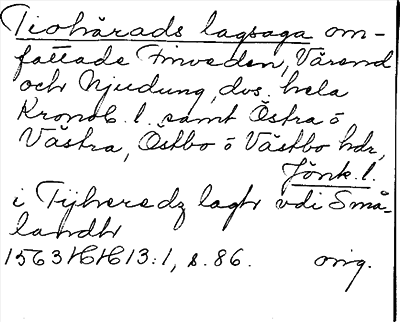 Tiohärads lagsaga om-
fattade Finveden, Värend
och Njudung, dvs. hela
Kronob. l. samt Östra o
Västra, Östbo o Västbo hdr,
Jönk. l.
i Tijheredz lagħr vdi Små-
landħr
1563 HH 13:1, s. 86. orig.